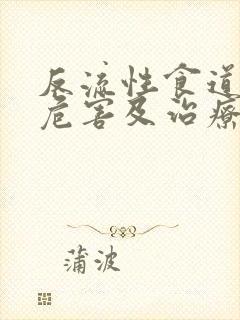 反流性食道
危害及治疗
蒲波